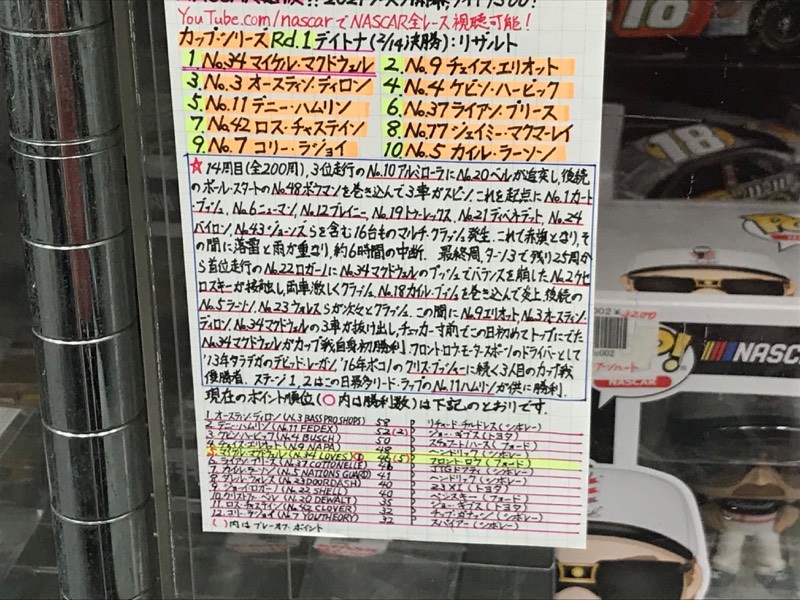 YouTube.com/nascarでNASCAR全レース視聴可能!
カップ・シリーズ Rd.1 デイトナ(2/14決勝):リザルト
1 No.34 マイケル・マクドウェル 2. No.9 チェイス・エリオット
3. No.3 オースティン・ディロン 4 No.4 ケビン・ハービック
5 No.11 デニー・ハムリン 6 No.37 ライアン・プリース
7 No.42 ロス・チャステイン 8 No.77 ジェイミー・マクマーレイ
9 No.7 コリー・ラジョイ 10. No.5 カイル・ラーソン
☆14周目(全200周)、3位走行のNo.10アルミローラにNo.20ベルが追突し、後続
のポール・スタートのNo.48ボウマンを巻き込んで3車がスピン。これを起点にNo.1カート・
ブッシュ、No.6ニューマン、No.12ブレイニー、No.19トゥルーレックス、No.21ディベネデット、No.24
バイロン、No.43ジョーンズらを含む16台ものマルチ・クラッシュ発生。これで赤旗となり、そ
の間に落雷と雨が重なり、約6時間の中断。最終周、ターン3で残り25周か
ら首位走行のNo.22ロガーノにNo.34マクドウェルのプッシュでバランスを崩したNo.2ケセ
ロスキーが接触し、両車激しくクラッシュ。No.18カイル・ブッシュを巻き込んで炎上、後続の
No.5ラーソン、No.23ウォレスらが次々とクラッシュ。この間にNo.9エリオット、No.3オースティン・
ディロン、No.34マクドウェルの3車が抜け出し、チェッカー寸前でこの日初めてトップにでた
No.34マクドウェルがカップ戦自身初勝利。フロント・ロウ・モータースポーツのドライバーとして
'13年タラデガのデビッド・レーガン、'16年ポコノのクリス・ブッシャーに続く3人目のカップ戦
優勝者。ステージ1、2はこの日最多リード・ラップのNo.11ハムリンが共に勝利。
現在のポイント順位(○内は勝利数)は下記のとおりです。
1. オースティン・ディロン(No.3 BASS PRO SHOPS) 58 P リチャード・チルドレス(シボレー)
2. デニー・ハムリン(No.11 FEDEX) 52(2) P ジョー・ギブス(トヨタ)
3. ケビン・ハービック(No.4 BUSCH) 50 P スチュワート・ハース(フォード)
4. チェイス・エリオット(No.9 NAPA) 48 P ヘンドリック(シボレー)
5. マイケル・マクドウェル(No.34 LOVES)① 46(5) P フロント・ロウ(フォード)
P ヘンドリック(シボレー)
8. ババ・ウォレス(No.23 DOORDASH) 40 P 23XI(トヨタ)
9. ジョーイ・ロガーノ(No.22 SHELL) 40 P ペンスキー(フォード)
10. クリストファー・ベル(No.20 DEWALT) 35 P ジョー・ギブス(トヨタ)
11. ロス・チャステイン(No.42 CLOVER) 32 P チップ・ガナッシ(シボレー)
12. コリー・ラジョイ(No.7 YOUTHEORY) 32 P スパイアー(シボレー)
( )内はプレーオフ・ポイント
18
18
POP!
NASCAR
NASC